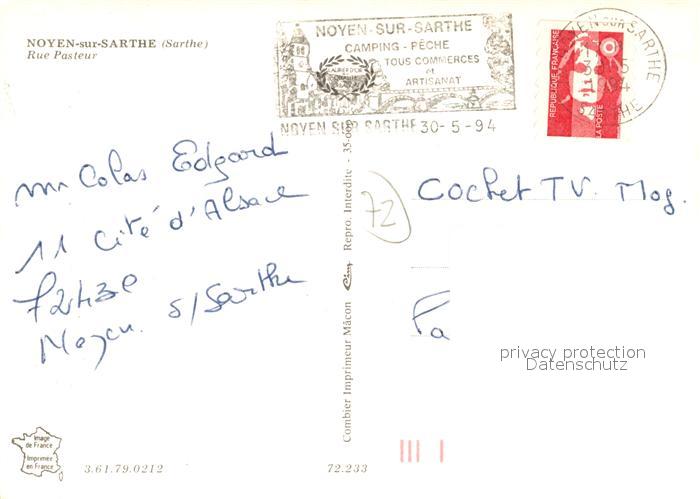 NOYEN-sur-SARTHE (Sarthe)
Rue Pasteur
NOYEN-SUR-SARTHE
CAMPING - PÊCHE
TOUS COMMERCES
et
ARTISANAT
NOYEN SUR SARTHE 30-5-94
NOYEN SUR SARTHE
REPUBLIQUE FRANÇAISE
LA POSTE
mr Colas Edgard
11 Cité d'Alsace
72430
Noyen s/Sarthe
72
Cochet TV. Mag.
Pa
privacy protection
Datenschutz
Combier Imprimeur Mâcon Cim Repro. Interdite - 35-009
Image
de France
Imprimée
en France
3.61.79.0212
72.233